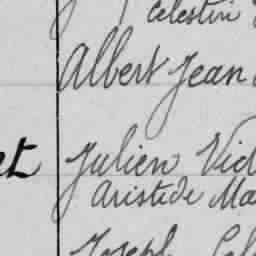 Celestin
Albert Jean
et Julien Vid
Aristide Ma
Joseph